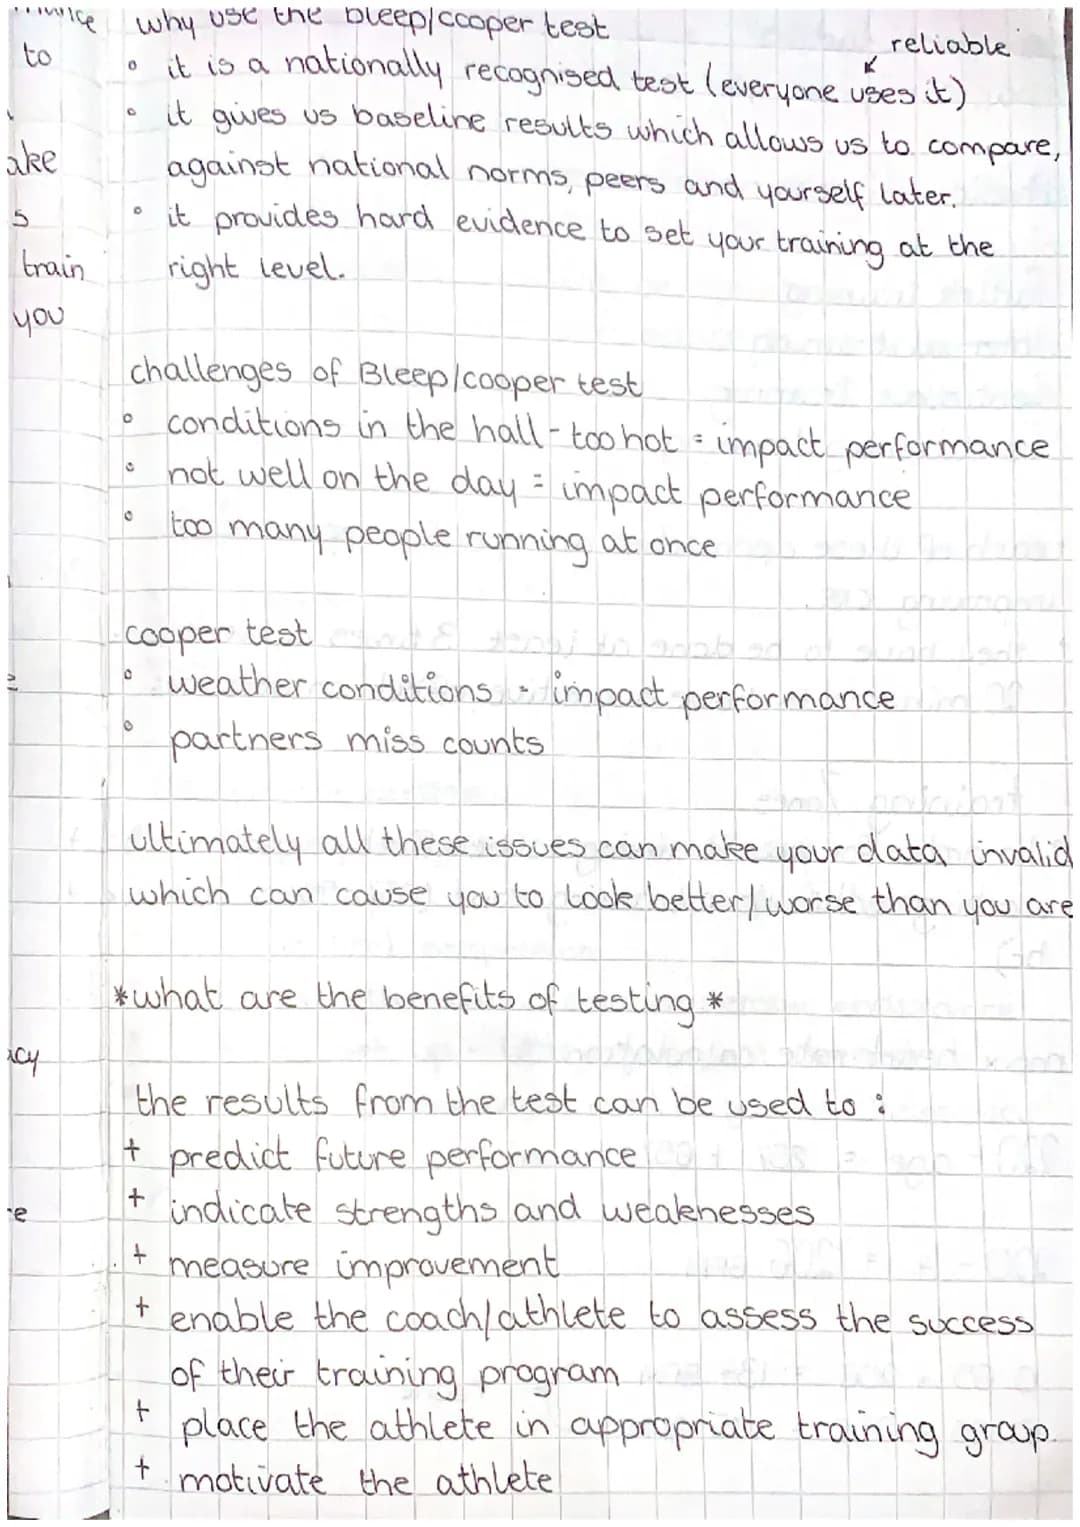 why use the bleep/ccoper test
reliable
it is a nationally recognised test (everyone uses it)
it gives us baseline results which allows us to compare,
against national norms, peers and yourself later.
it provides hard evidence to set your training at the
right level.
challenges of Bleep/cooper test
conditions in the hall - too hot = impact performance
not well on the day = impact performance
too many people running at once
cooper test
weather conditions - impact performance
partners miss counts
ultimately all these issues can make your data invalid
which can cause you to look better/worse than you are
*what are the benefits of testing *
the results from the test can be used to :
+ predict future performance
+ indicate strengths and weaknesses
+ measure improvement
+ enable the coach/athlete to assess the success
of their training program
+ place the athlete in appropriate training group.
+ motivate the athlete
to
ake
s
train
you